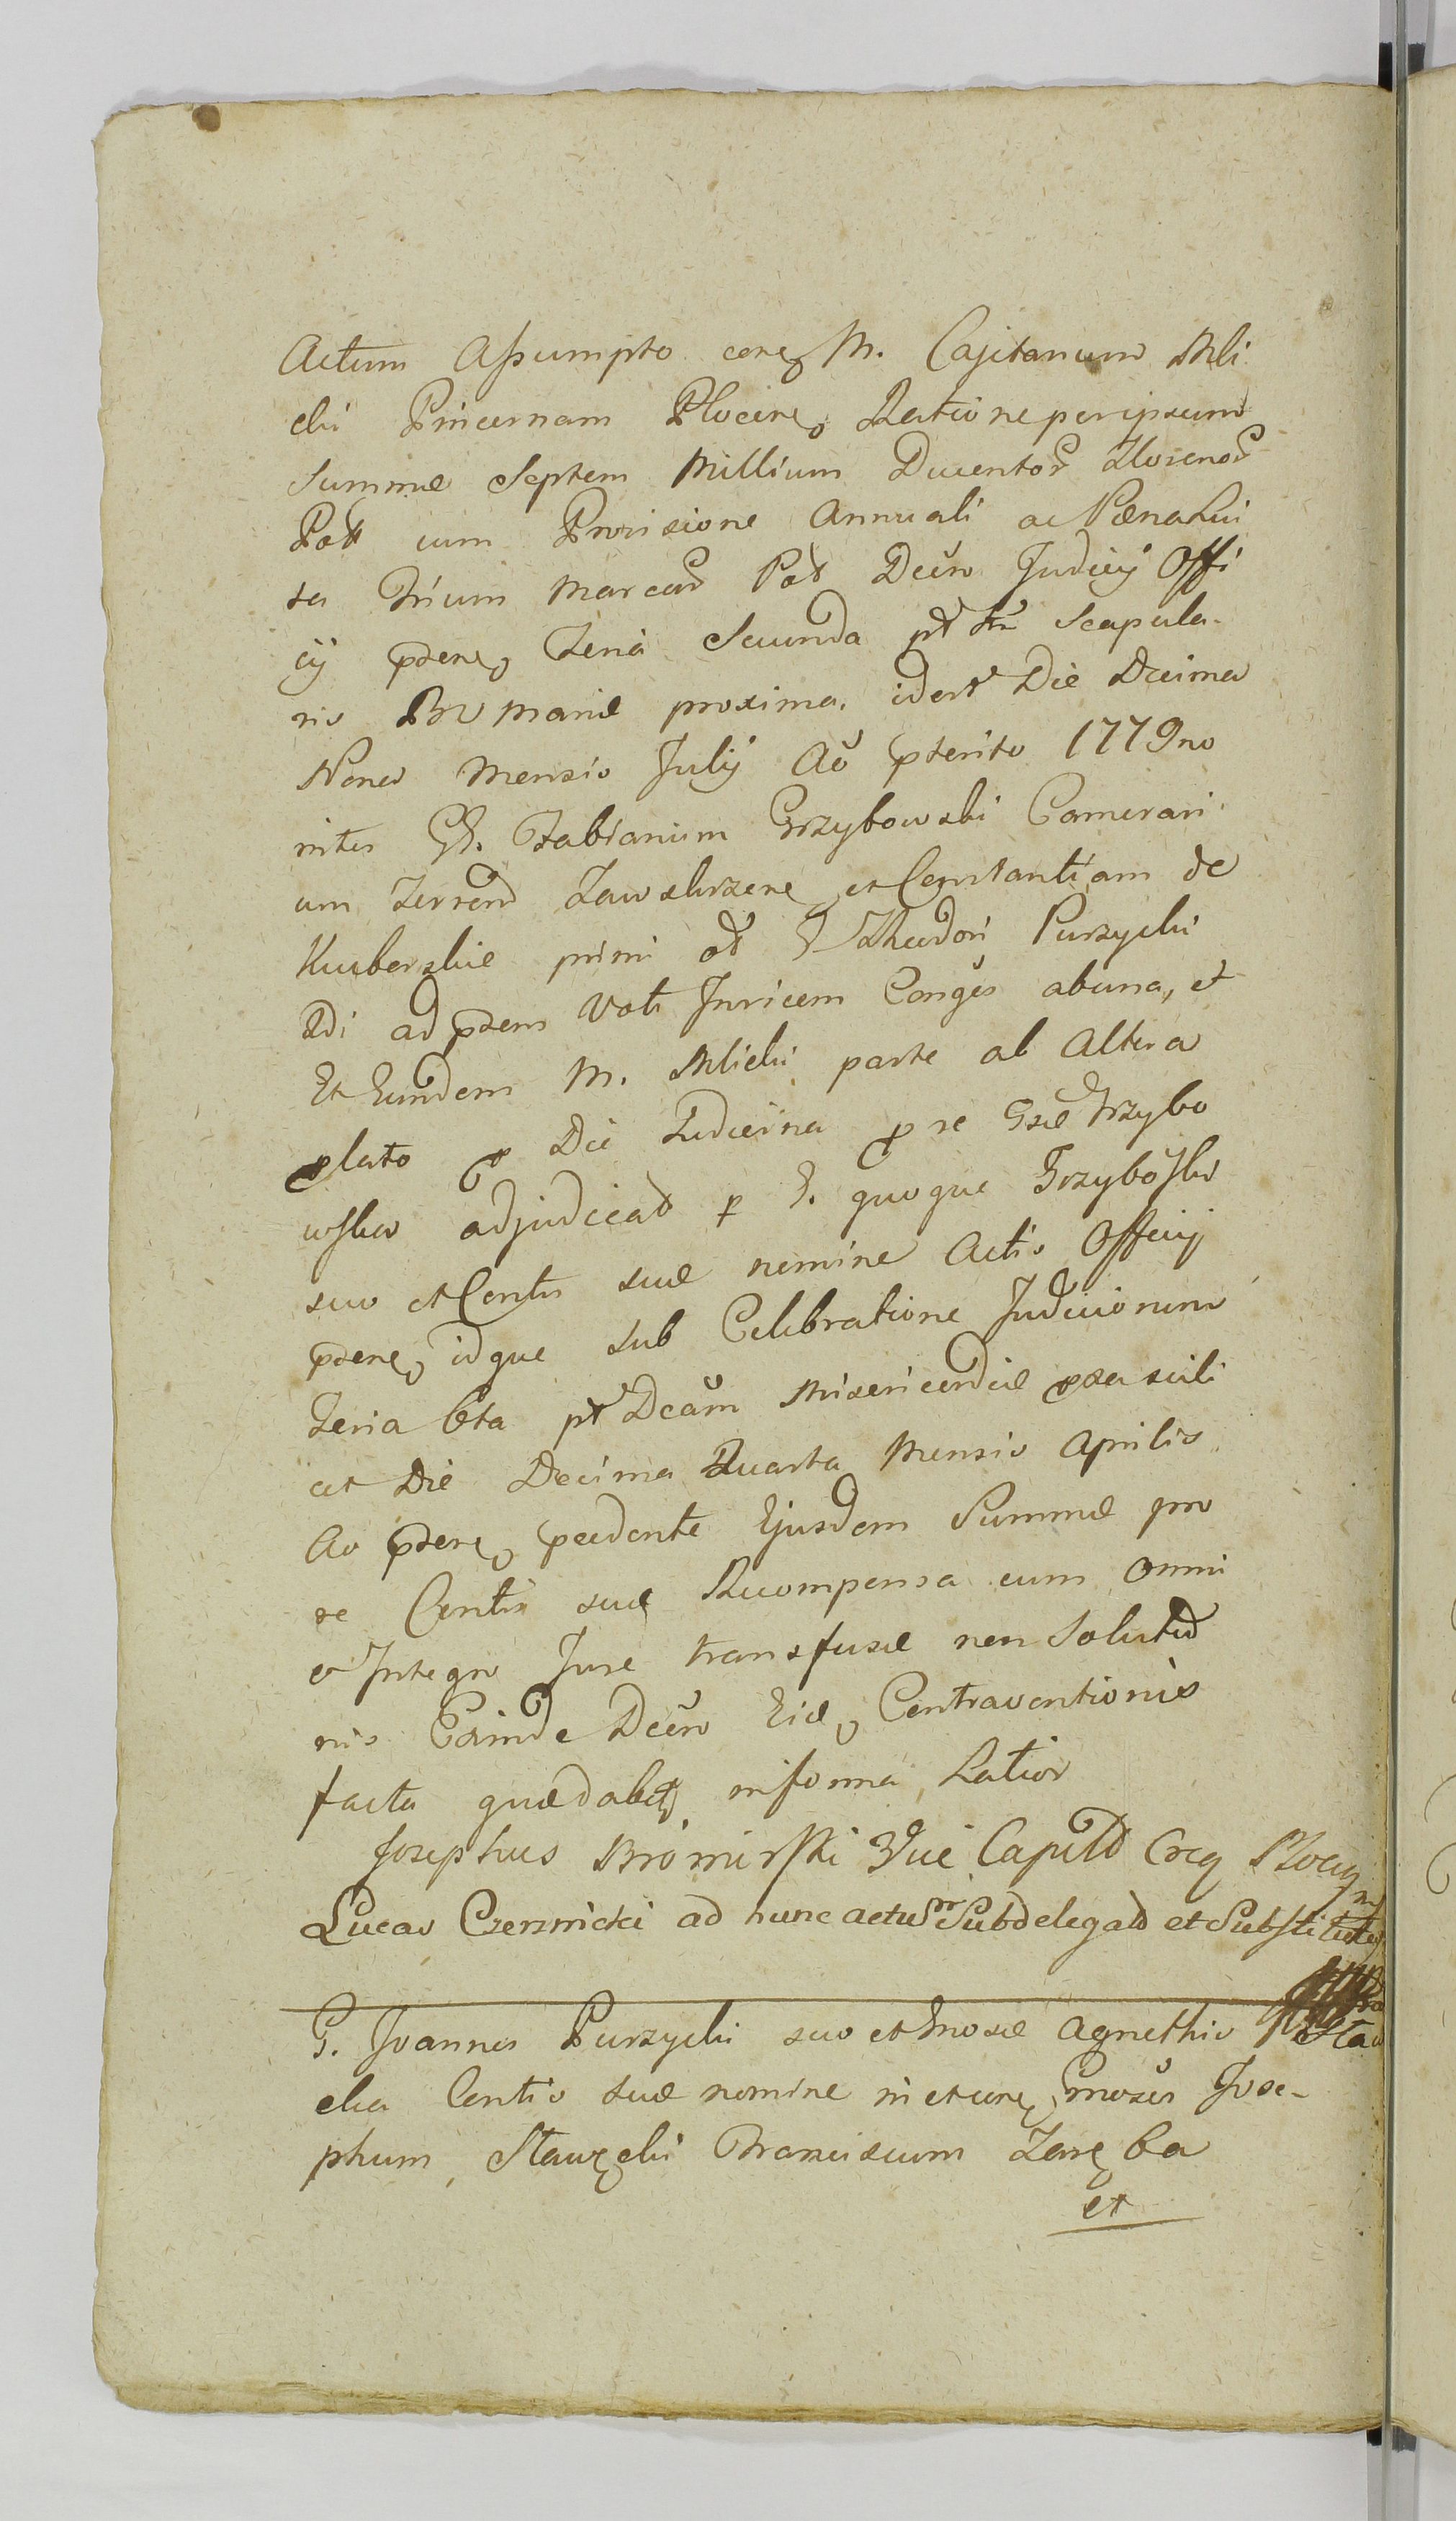 Actum Assumpto coner M. Cajetanum Mli
cki Pincernam Plocen Ratione per ipsum
Summæ Septem Millium Ducentor Florenor
Poll cum Provisione Annuali ac Pæna Lui
ta Trium Marcar Pol Decro Judicij Offi
cij pdene Feria Secunda pt Scapula-
ris BV Mariæ proxima, idest Die Decima
Nona Mensis Julij Ao pterito 1779no
inter GG. Fabianum Grzybowski Camerari
um Terrend Zawskrzene et Constantiam de
primi ot Purzycki
2di ad pdens Voti Invicem Conges ab una, et
Et Eundem M. Mlicki parte ab Altera
plato p Die Grzybo
wska adjudicat p G. quoque Grzybowski
suo et Contis suæ nomine Actis Officij
pdene, idque sub Celebratione Judiciorum
Feria 6ta pt Dcam Misericordiæ pxa scili
cet Die Decima Quarta Mensis Aprilis
Ao pdene pcedente Ejusdem Summæ pro
re Contis suæ Recompensa cum Omni
et Integro Jure transfusæ non Solutio
nis Exinde Decro Contraventionis
facta quæ dabitr in forma Latior
Josephus Bromirski Vice Capitls Cree Plocen
Lucas Czerznicki ad hunc actum Subdelegats et Substituts
G. Joannes Purzycki suo et Gnosæ Agnethis Sta
cka Contis suæ nomine in et cone Gnosos Jose-
phum, Stawęcki Franciscum Zaręba
et